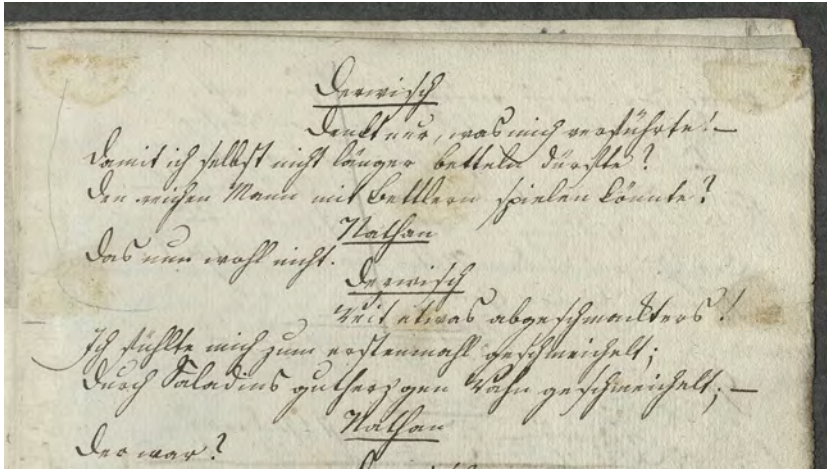 Derwisch
Denkt nur, was mich verführte! –
Damit ich selbst nicht länger betteln dürfte?
Den reichen Mann mit Bettlern spielen könnte?
Nathan
Das nun wohl nicht.
Derwisch
Weit etwas abgeschmackters!
Ich fühlte mich zum erstenmahl geschmeichelt;
Durch Saladins gutherzgen Wahn geschmeichelt; –
Nathan
Der war?